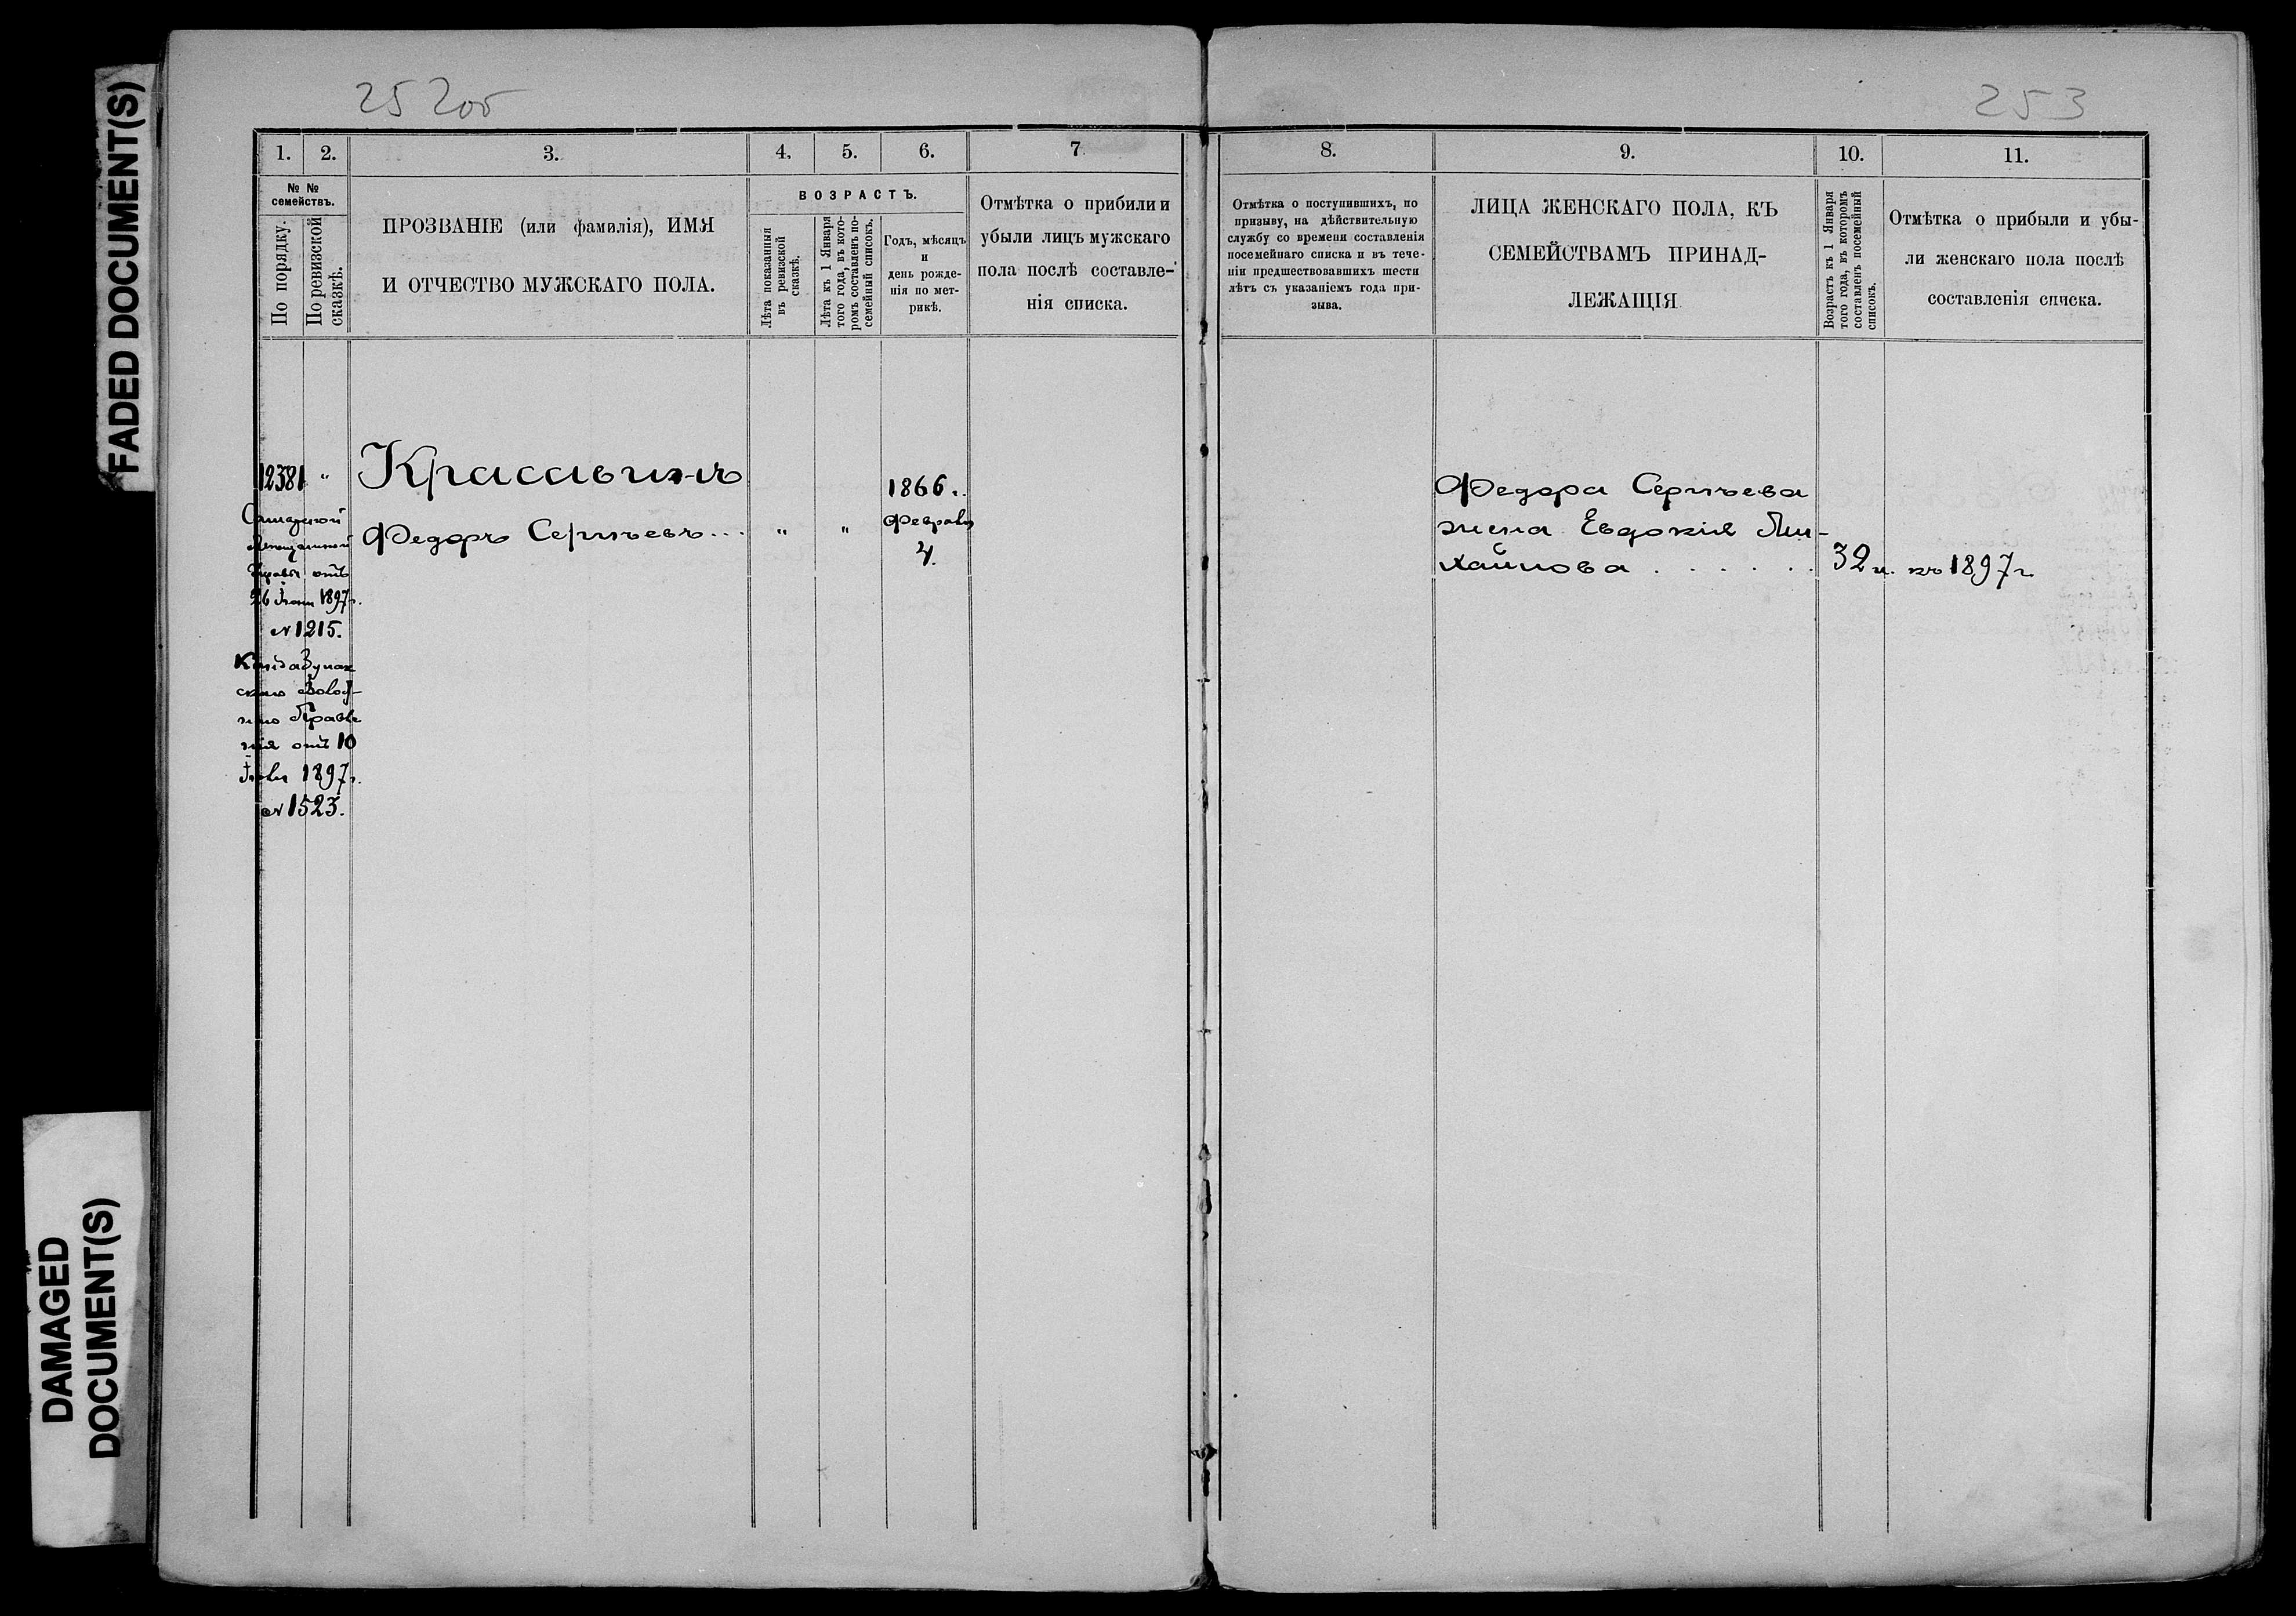 FADED DOCUMENT(S)
DAMAGED
DOCUMENT(S)
252об
1. 2. 3. 4. 5. 6. 7
№ №
семействъ.
По порядку.
По ревизской
сказкѣ.
ПРОЗВАНІЕ (или фамилія), ИМЯ
И ОТЧЕСТВО МУЖСКАГО ПОЛА.
ВОЗРАСТЪ.
Лѣта показанныя
въ ревизской
сказкѣ.
Лѣта къ 1 Января
того года, въ кото-
ромъ составленъ по-
семейный списокъ.
Годъ, мѣсяцъ
и
день рожде-
нія по мет-
рикѣ.
Отмѣтка о прибили и
убыли лицъ мужскаго
пола послѣ составле-
нія списка.
12381 " Красавинъ
1866.
Самарской
Мѣщанской
Управы отъ
26 Іюня 1897г.
№ 1215.
Ку
скаго Волост-
наго Правле
нія отъ 10
Іюля 1897г.
№ 1523.
Федоръ Сергѣевъ... " " Февраля
4.
253
8. 9. 10. 11.
Отмѣтка о поступившихъ, по
призыву, на дѣйствительную
службу со времени составленія
посемейнаго списка и въ тече-
ніи предшествовавшихъ шести
лѣтъ съ указаніемъ года при-
зыва.
ЛИЦА ЖЕНСКАГО ПОЛА, КЪ
СЕМЕЙСТВАМЪ ПРИНАД-
ЛЕЖАЩІЯ
Возрастъ къ 1 Января
того года, въ которомъ
составленъ посемейный
списокъ.
Отмѣтка о прибыли и убы-
ли женскаго пола послѣ
составленія списка.
Федора Сергѣева
жена Евдокія Ми-
хайлова . . . . . . 32 л. къ 1897 г.